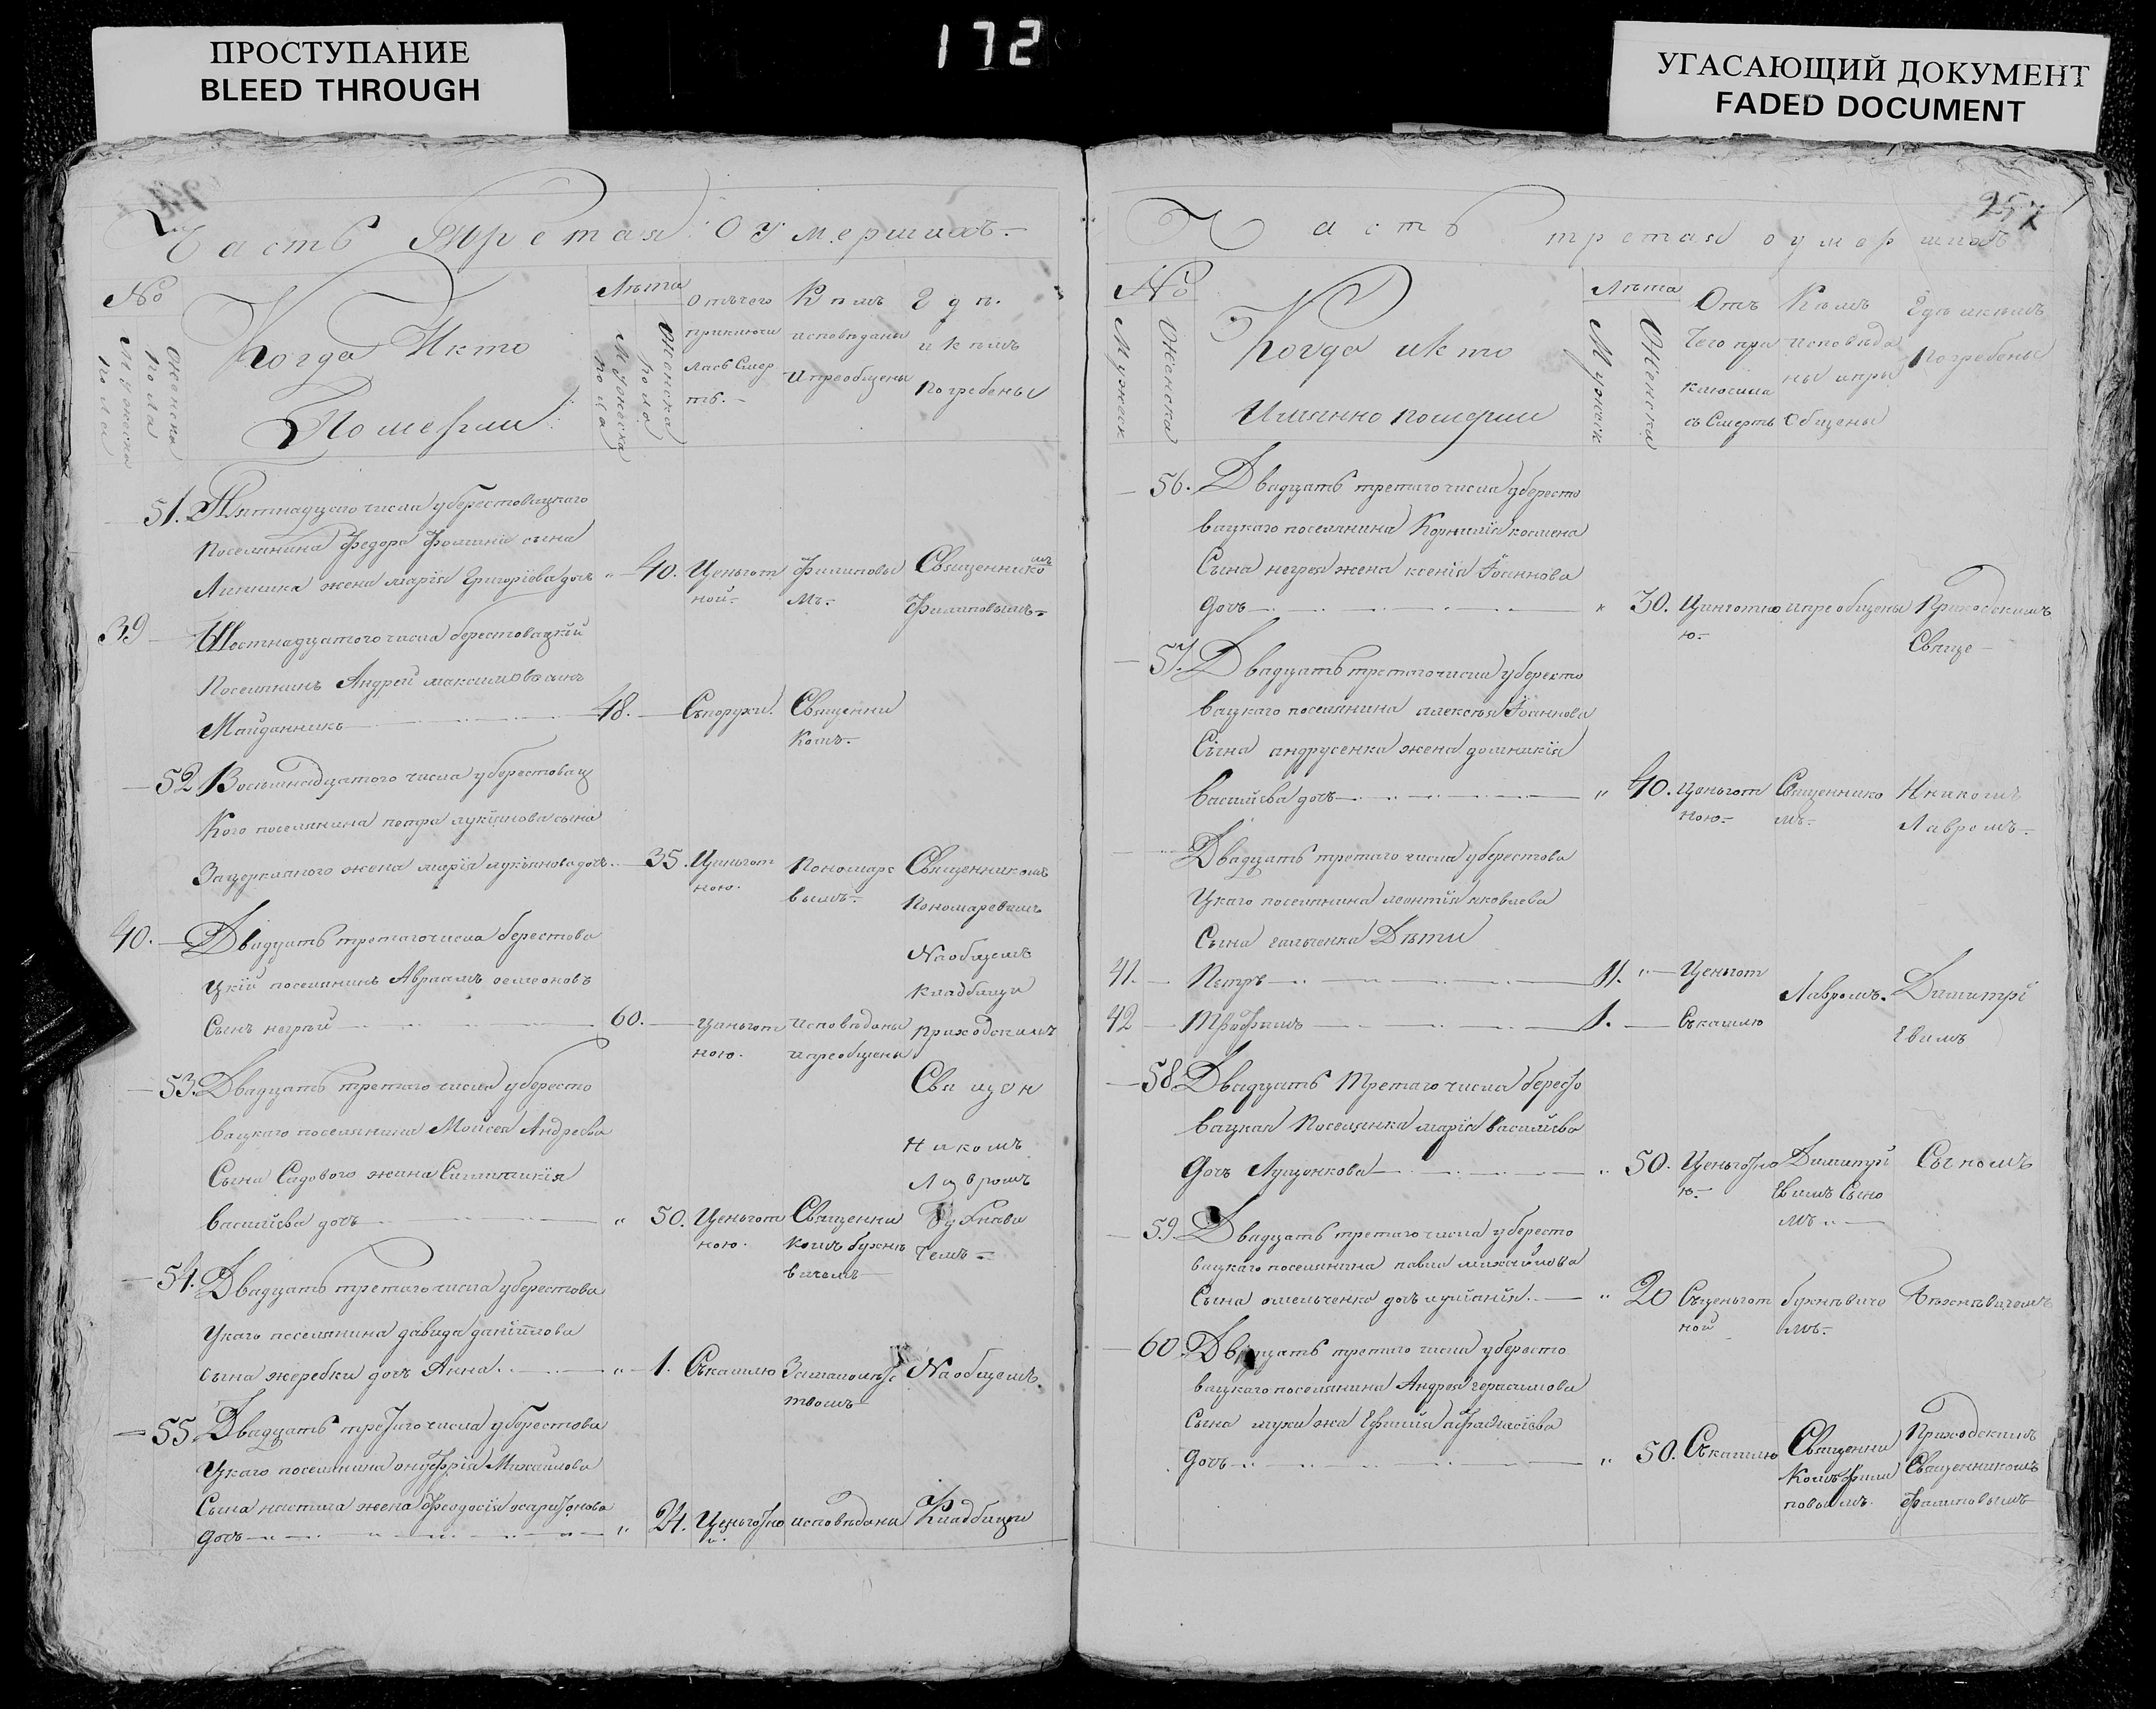 ПРОСТУПАНИЕ
BLEED THROUGH
172
УГАСАЮЩИЙ ДОКУМЕНТ
FADED DOCUMENT
Часть Третая О Умершихъ.
№
Мужеска пола
Женска пола
Когда Икто
Померли
Лѣта
Мужеска пола
Женска пола
Отъчего
приключи
лась Смер
ть.
Кѣмъ
исповѣданы
Ипреобщены
Гдѣ
и кѣмъ
Погребены
51. Пятнадцаго числа уберестовацкаго
Поселянина Федора Фомина сына
Линника жена марія Григоріева дочь " 40. Ценьгот Филиповы Священнико мъ
ной. мъ. Филиповымъ
39 Шестнадцатого числа берестовацкій
Поселянинъ Андрей максимовъ сынъ
Майданникъ 48. Съпорухи. Священни
комъ.
52 Восьмнадцатого числа уберестовац
Кого поселянина петра лукіянова сына
жена марія лукьянова дочь 35. Ценьгот Пономаре Священникомъ
ною. вымъ. Пономаревымъ
40. Двадцать третаго числа берестова Наобщемъ
цкій поселянинъ Авраамъ семеоновъ кладбищи
Сынъ негрѣй 60. Ценьгот исповѣданы приходскимъ
ною. ипреобщены
53. Двадцать третаго числа убересто Священ
вацкаго поселянина Моисея Андреева Никомъ
Сына Садового жина Лавромъ
васильева дочь " 50. Ценьгот Священни
ною. комъ бужнѣ чемъ
вичемъ
54. Двадцать третаго числа уберестова
цкаго поселянина давида даніилова
сына жеребки дочь Анна " 1. Съкашлю Замалолѣс Наобщемъ
твомъ
55. Двадцать третиго числа уберестова
цкаго поселянина онуфрія Михайлова
Сына жена Феодосія харитонова
дочь " 24. Ценьготно исповѣдана Кладбищи
й.
257
Часть третая о умершихъ
№
Мужеск
Женска
Когда икто
Имянно померли
Лѣта
Мужеск
Женска
Отъ
Чего при
ключила
съ Смерть
Кѣмъ
исповѣда
ны ипри
Общены
Гдѣ икѣмъ
Погребены
56. Двадцать третаго числа убересто
вацкаго поселянина Корнилія космена
Сына негрея жена ксенія Іоаннова
дочь " 30. Цинготно ипреобщены Приходскимъ
ю. Свяще
57. Двадцать третаго числа убересто
вацкаго поселянина алексѣя Іоаннова
Сына андрусенка жена домникія
Васильева дочь " 40. Ценьгот Священнико Никомъ
ною. мъ. Лавромъ.
Двадцать третаго числа уберестова
цкаго поселянина леонтія яковлева
Сына гальченка Дѣти
41. Петръ 11. " Ценьгот
Лавромъ. Димитрі
42 Трофимъ 1. Съкашлю
евымъ
58 Двадцать Третаго числа бересто
вацкая Поселянка марія васильева
дочь Луценкова " 50. Ценьготно Димитрі Сыномъ
ю. Евымъ Сыно
мъ
59. Двадцать третаго числа убересто
вацкаго поселянина павла михайлова
Сына омельченка дочь иуліанія " 20 Съценьгот бужнѣвиче Бужнѣвичемъ
ной мъ.
60. Двадцать третаго числа убересто
вацкаго поселянина Андрея герасимова
Сына жа Ефимія
дочь " 50. Съкашлю Священни Приходскимъ
комъ Фили Священникомъ
повымъ. Филиповымъ